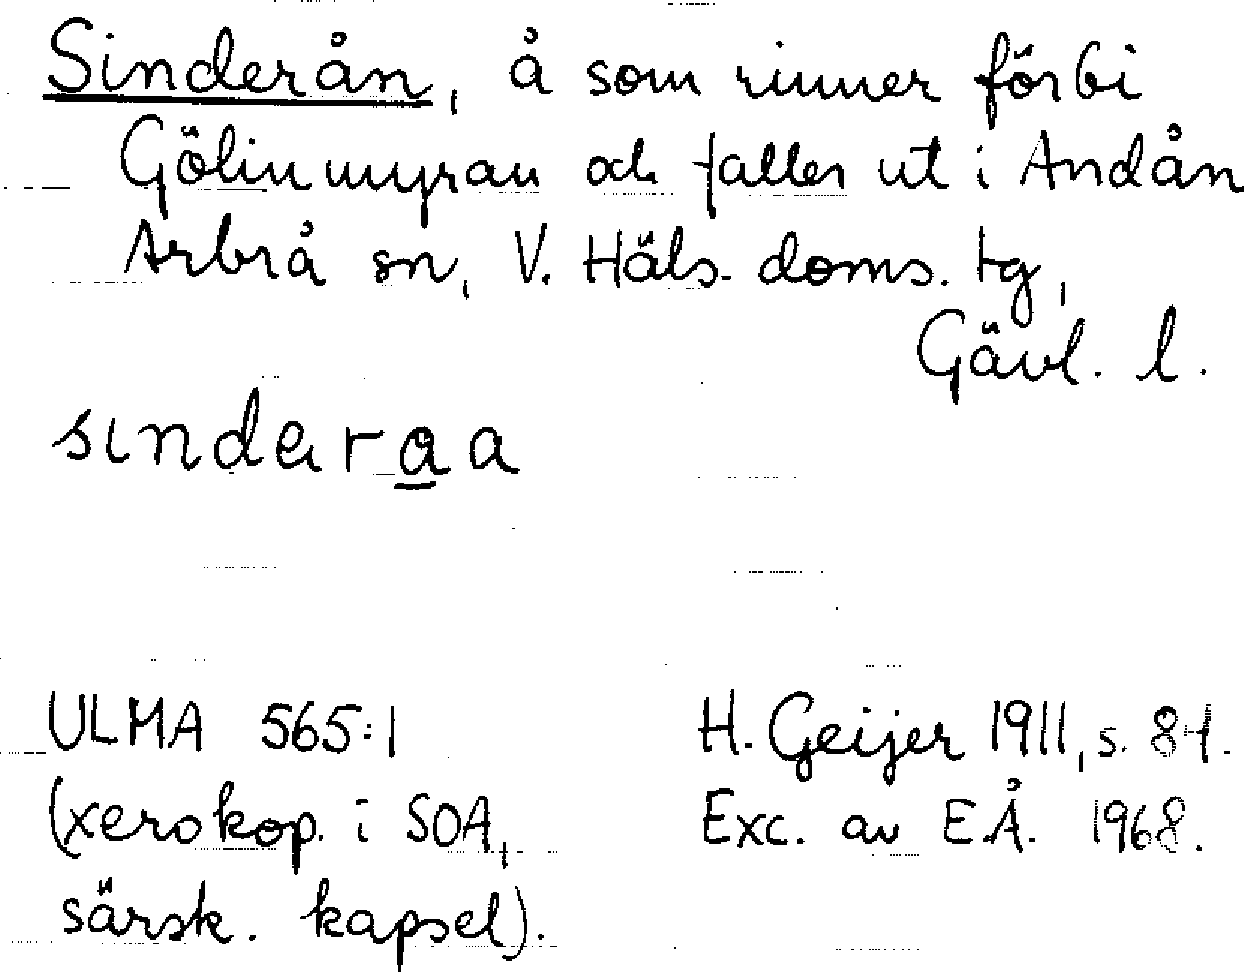 Sinderån, å som rinner förbi
Gölinmyran och faller ut i Andån
Arbrå sn, V. Häls. doms. tg,
Gävl. l.
sindəraa
ULMA 565:1
H. Geijer 1911, s. 84.
(xerokop. i SOA,
Exc. av E.Å. 1968.
särsk. kapsel).